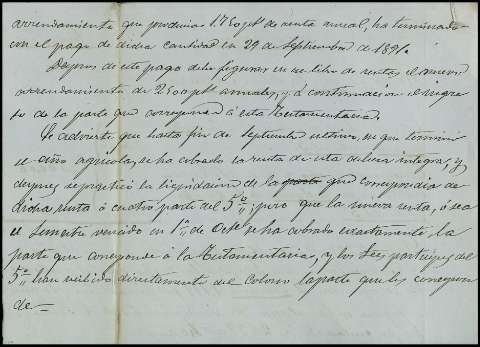 arrendamiento que producia 1.750 pts de renta anual, ha terminado
con el pago de dicha cantidad en 29 de Septiembre de 1891.
Despues de este pago debe figurar en su libro de rentas el nuevo
arrendamiento de 2500 pts anuales, y á continuacion el ingre
so de la parte que corresponde á esta Testamentaria.
Se advierte que hasta fin de Septiembre ultimo, en que terminó
el año agricola, se ha cobrado la renta de esta dehesa integra, y
despues se practicó la liquidacion de la parte que correspondia de
dicha renta á cuatro parte del 5º; pero que la nueva renta, ó sea
el Semestre vencido en 1º de Octe se ha cobrado exactamente la
parte que corresponde á la Testamentaria, y los Sres participes del
5º han recibido directamente del Colono la parte que les correspon
de=